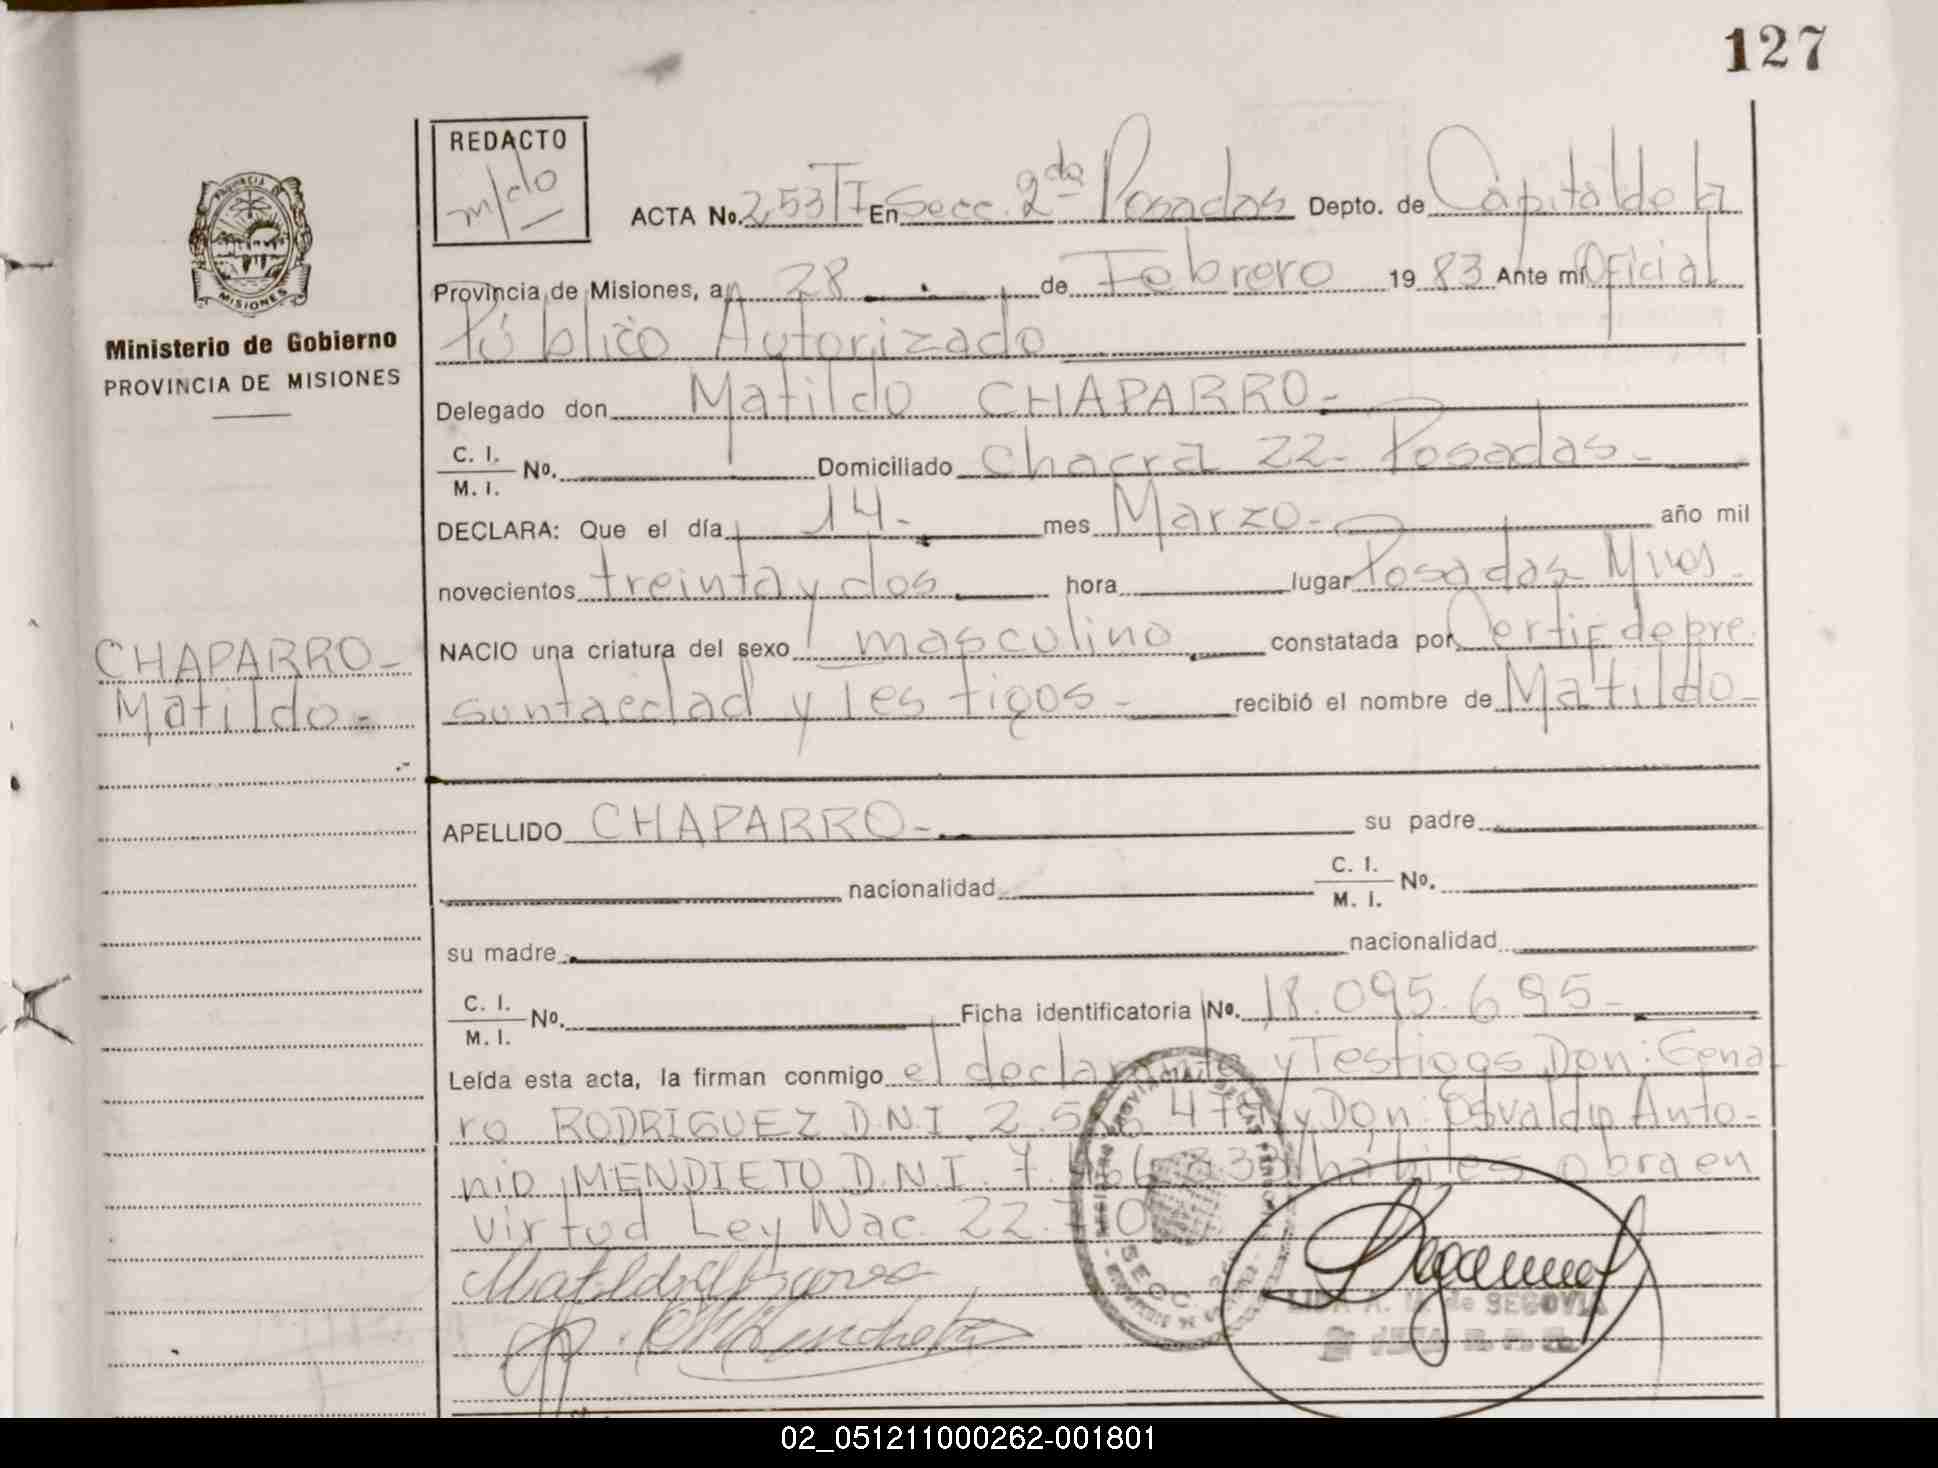 127
REDACTO
m/do
PROVINCIA DE
MISIONES
Ministerio de Gobierno
PROVINCIA DE MISIONES
ACTA No. 253 T I En Secc. 2da Posadas Depto. de Capital de la
Provincia de Misiones, a 28 de Febrero 19 83 Ante mí Oficial
Público Autorizado
Delegado don Matildo CHAPARRO-
C. I.
M. I. No. Domiciliado Chacra 22- Posadas-
DECLARA: Que el día 14- mes Marzo- año mil
novecientos treinta y dos hora lugar Posadas Mnes-
NACIO una criatura del sexo masculino constatada por Certif de pre
sunta edad y Testigos- recibió el nombre de Matildo-
CHAPARRO-
Matildo-
APELLIDO CHAPARRO- su padre
nacionalidad C. I.
M. I. No.
su madre nacionalidad
C. I.
M. I. No. Ficha identificatoria No. 18.095.695-
Leída esta acta, la firman conmigo el declarante y Testigos Don: Gena
ro RODRIGUEZ D.N.I. 2.5 y Don: Osvaldo Anto-
nio MENDIETO D.N.I. hábiles obra en
virtud Ley Nac. 22.
Matildo Chaparro
de SEGOVIA
02_051211000262-001801